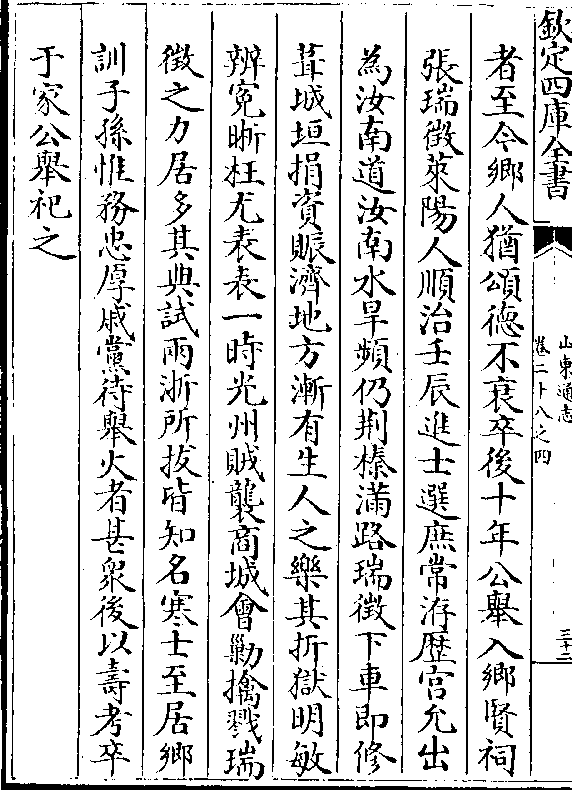 欽定四庫全書
山東通志
卷二十八之四
三十二
者至今鄉人猶頌德不衰卒後十年公舉入鄉賢祠
張瑞徵萊陽人順治壬辰進士選庶常洊歴宮允出
為汝南道汝南水旱頻仍荆榛滿路瑞徵下車即修
葺城垣捐資賑濟地方漸有生人之樂其折獄明敏
辨寃晰枉尤表表一時光州賊襲商城會勦擒戮瑞
徵之力居多其典試兩浙所拔皆知名寒士至居鄉
訓子孫惟務忠厚戚黨待舉火者甚衆後以壽考卒
于家公舉祀之